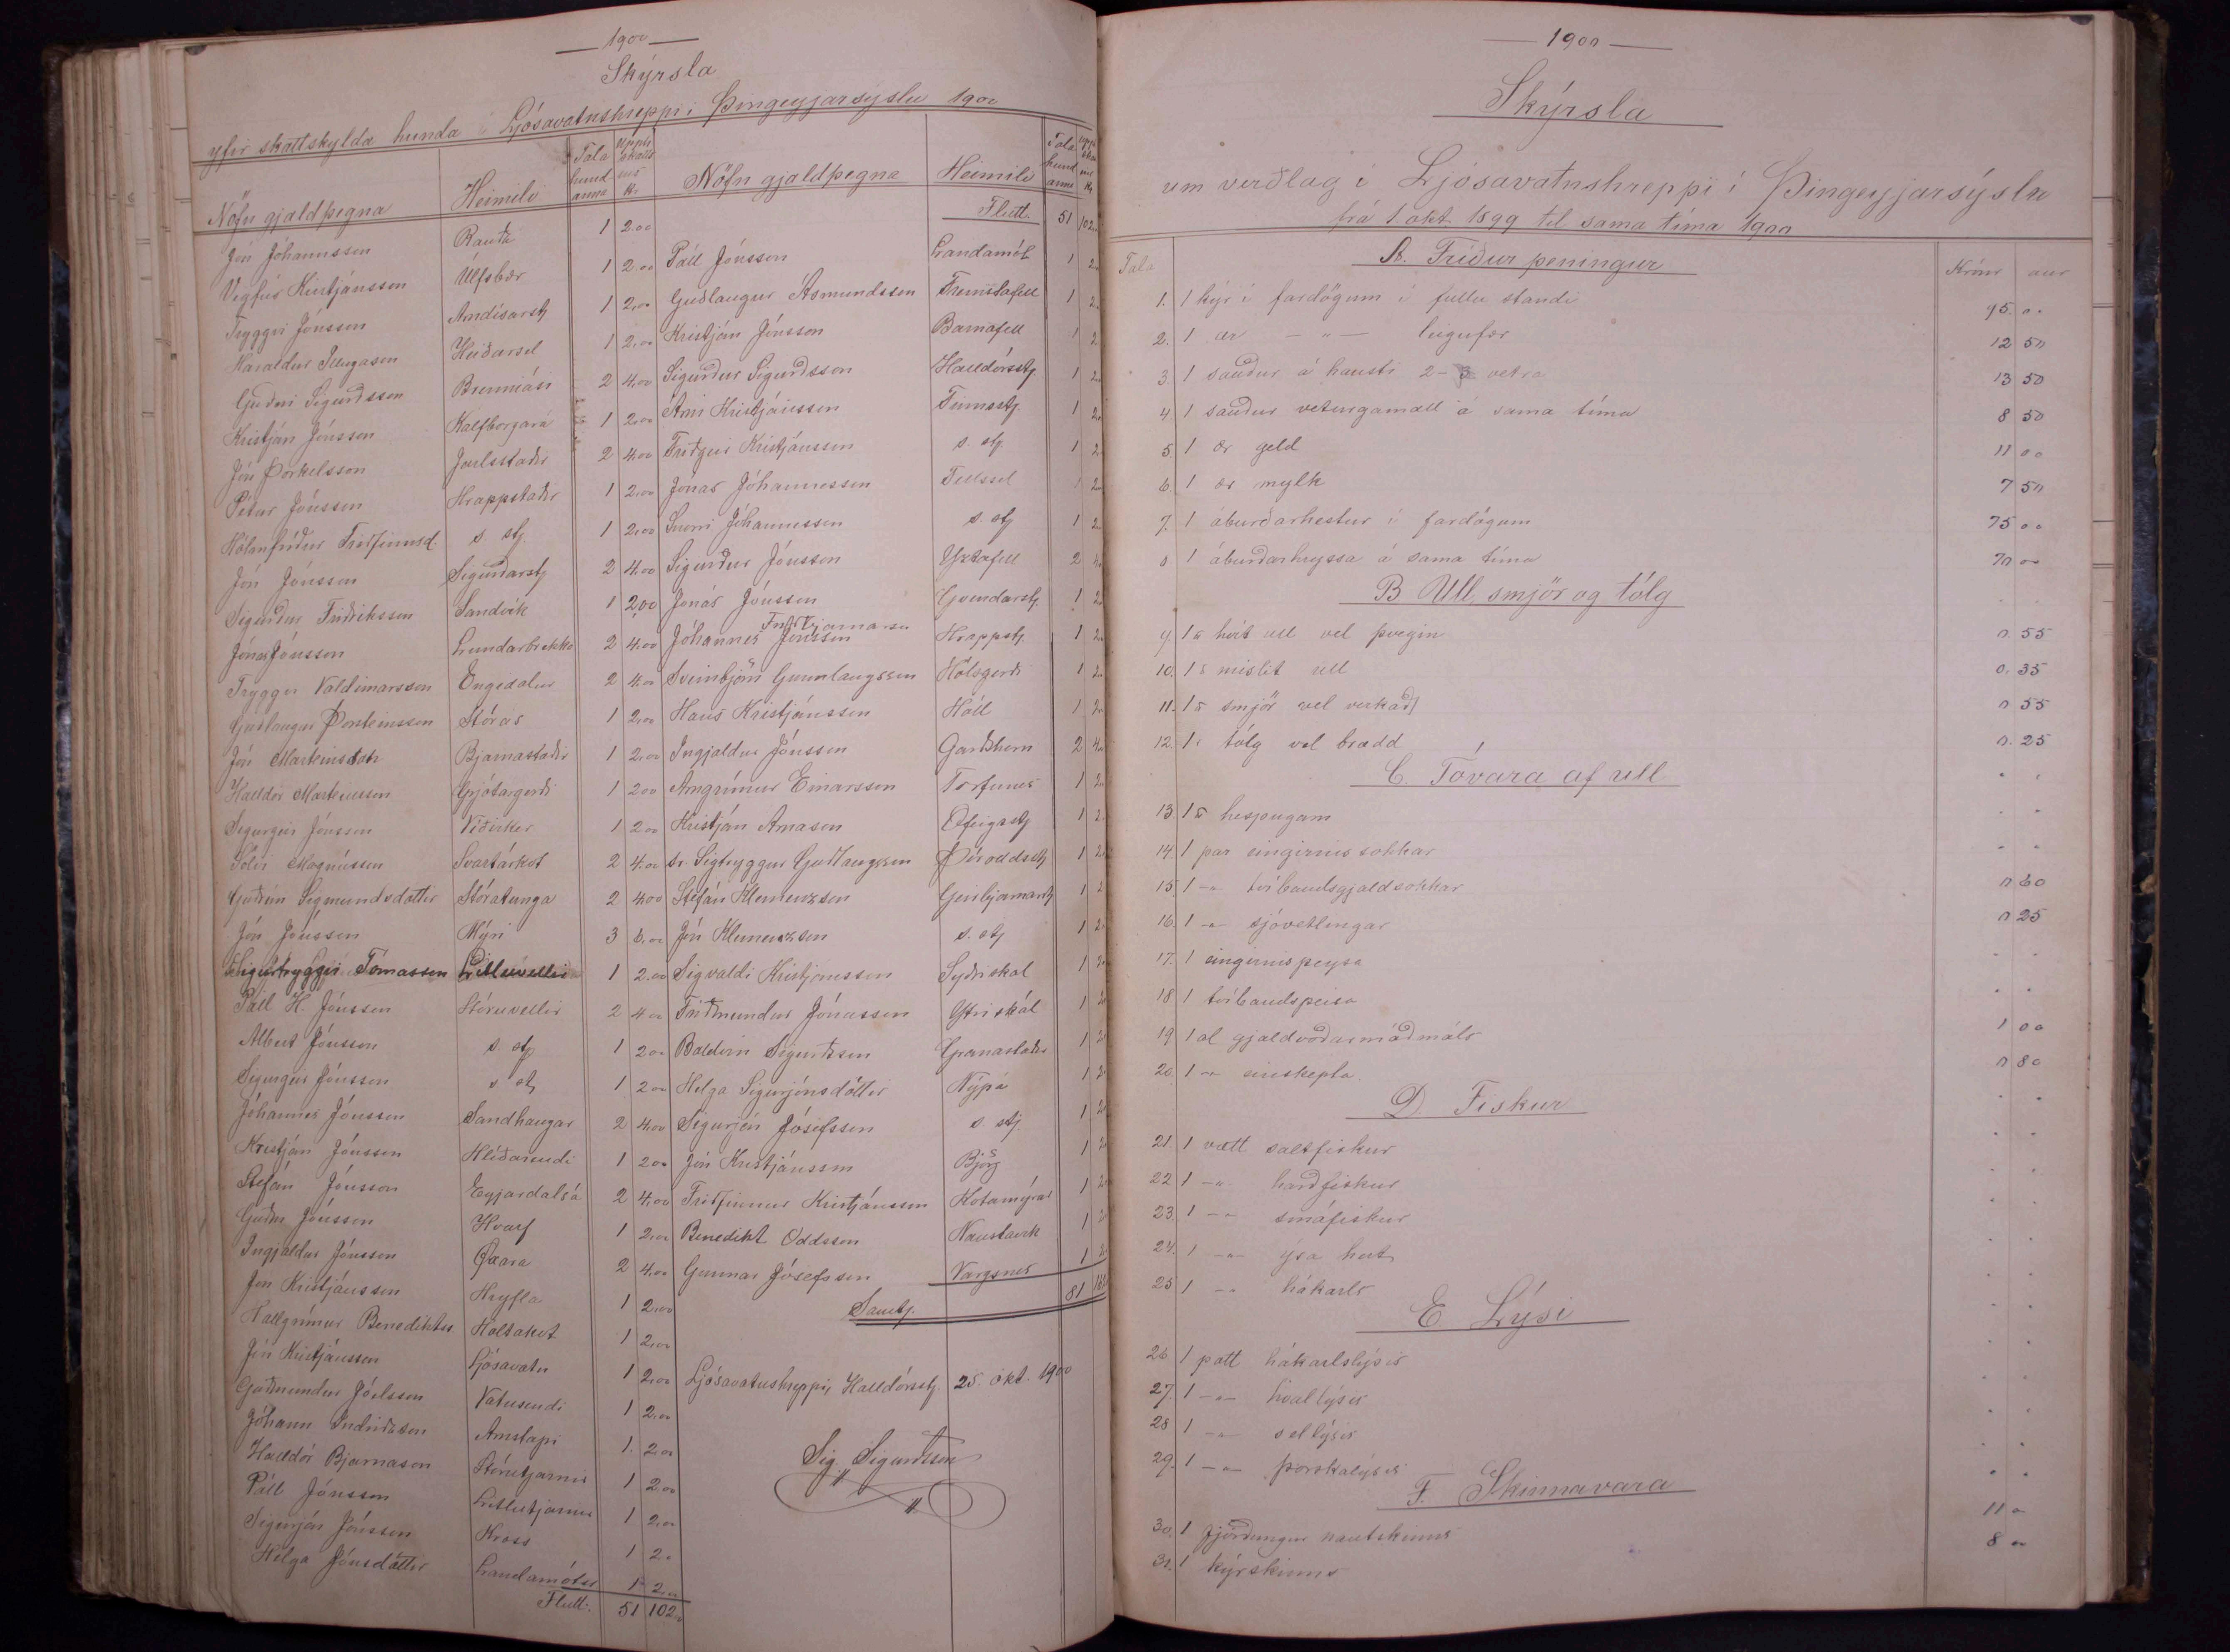 1900
Skýrsla
yfir skattskylda hunda í Ljósavatnshreppi í Þingeyjarsýslu 1900
Nöfn gjaldþegna Heimili Tala hundanna Upph. skattsins Kr
Jón Jóhannsson Rauðá 1 2.00
Vigfús Kristjánsson Úlfsbær 1 2.00
Tryggvi Jónsson Arndísarstj 1 2,00
Haraldur Illugason Heiðarsel 1 2,00
Guðni Sigurdsson Brenniási 2 4,00
Kristján Jónsson Kalfborgará 1 2,00
Jón Þorkelsson Jarlsstaðir 2 4,00
Pétur Jónsson Hrappstaðir 1 2,00
Hólmfríður Friðfinnsd. s. stj. 1 2,00
Jón Jónsson Sigurðarstj 2 4,00
Sigurður Friðriksson Sandvík 1 2,00
Jónas Jónsson Lundarbrekka 2 4,00
Tryggvi Valdimarsson Engidalur 2 4,00
Guðlaugur Þorsteinsson Stórás 1 2,00
Jón Marteinsson Bjarnastaðir 1 2,00
Halldór Marteinsson Grjótárgerði 1 2 00
Sigurgeir Jónsson Víðirker 1 2 00
Magnússon Svartárkot 2 4.00
Guðrún Sigmundsdóttir Stóratunga 2 4.00
Jón Jónsson Mýri 3 6,00
Sigurtryggvi Tómasson Litluvellir 1 2,00
Páll H. Jónsson Stóruvellir 2 4 00
Albert Jónsson s. stj 1 2 00
Sigurgeir Jónsson s stj 1 2 00
Jóhannes Jónsson Sandhaugar 2 4,00
Kristján Jónsson Hlíðarendi 1 2 00
Stefán Jónsson Eyjardalsá 2 4,00
Guðni Jónsson Hvarf 1 2,00
Ingjaldur Jónsson Öxará 2 4,00
Jón Kristjánsson Hryfla 1 2,00
Hallgrímur Benediktss Holtakot 1 2,00
Jón Kristjánsson Ljósavatn 1 2,00
Guðmundur Jóelsson Vatnsendi 1 2,00
Jóhann Indriðason Arnstapi 1. 2 00
Halldór Bjarnason Stórutjarnir 1 2 00
Páll Jónsson Litlutjarnir 1 2,00
Sigurjón Jónsson Kross 1 2 0
Helga Jónsdóttir Landamótss 1 2,00
Flutt. 51 102,00
Nöfn gjaldþegna Heimili Tala hundanna
Flutt. 51 102
Páll Jónsson Landamót 1 2
Guðlaugur Ásmundsson Fremstafell 1 2
Kristján Jónsson Barnafell 1 2
Sigurður Sigurðsson Halldórsstj 1 2
Árni Kristjánsson Finnsstj. 1 2
Friðgeir Kristjánsson s. stj. 1 2
Jónas Jóhannesson Fellssel 1 2
Snorri Jóhannesson s. stj 1 2
Sigurður Jónsson Yztafell 2 4
Jónas Jónsson Gvendarstj. 1 2
Jóhannes Friðbjarnarson Hrappstj. 1 2
Sveinbjörn Gunnlaugsson Hólsgerði 1 2
Hans Kristjánsson Hóll 1 2
Ingjaldur Jónsson Garðshorn 2 4
Arngrímur Einarsson Torfunes 1 2
Kristján Árnason Ófeigsstj 1 2
sr. Sigtryggur Guðlaugsson Þóroddsstj 1 2
Stefán Klemenzson Geirbjarnarstj 1 2
Jón Klemenzson s. stj 1 2
Sigvaldi Kristjánsson Syðriskál 1 2
Friðmundur Jónasson Ytriskál 1 2
Baldvin Sigurðsson Granastaðir 1 2
Helga Sigurjónsdóttir Nýpá 1 2
Sigurjón Jósefsson s. stj. 1 2
Jón Kristjánsson Björg 1 2
Friðfinnur Kristjánsson Kotamýrar 1 2
Benedikt Oddsson Naustavík 1 2
Gunnar Jósefsson Vargsnes 1 2
Samtj. 81 162
Ljósavatnshreppi, Halldórsstj. 25. okt. 1900
Sig. Sigurðsson
1900
Skýrsla
um verðlag í Ljósavatnshreppi í Þingeyjarsýslu
frá 1 okt. 1899 til sama tíma 1900
Tala A. Fríður peningur Krónr aur
1. 1 kýr í fardögum í fullu standi 95. 00
2. 1 ær — " — leigufær 12 50
3. 1 sauður á hausti 2-3 vetra 13 50
4 1 sauður veturgamall á sama tíma 8 50
5. 1 ær geld 11 00
6. 1 ær mylk 7 50
7. 1 áburðarhestur í fardögum 75 00
8 1 áburðarhryssa á sama tíma 70 00
B Ull, smjör og tólg
9. 1 ℔ hvít ull vel þvegin 0. 55
10. 1 ℔ mislit ull 0. 35
11. 1 ℔ smjör vel verkað 0 55
12. 1 ℔ tólg vel brædd 0. 25
C. Tóvara af ull
13. 1 ℔ hespugarn
14. 1 par eingirnissokkar
15 1 -"- tvíbandsgjaldsokkar 0 60
16. 1 -"- sjóvetlingar 0 25
17. 1 eingirnispeysa
18 1 tvíbandspeisa
19 1 al gjaldvoðarváðmáls 1 00
20. 1 -"- einskepta. 0 80
D. Fiskur
21. 1 vætt saltfiskur
22 1 -"- harðfiskur
23. 1 -"- smáfiskur
24. 1 -"- ýsa hert
25 1 -"- hákarls
E Lýsi
26 1 pott hákarlslýsis
27. 1 -"- hvallýsis
28 1 -"- sellýsis
29. 1 -"- þorskalýsis
F. Skinnavara
30. 1 fjórðungur nautskinns 11 0
31. 1 kýrskinns 8 00